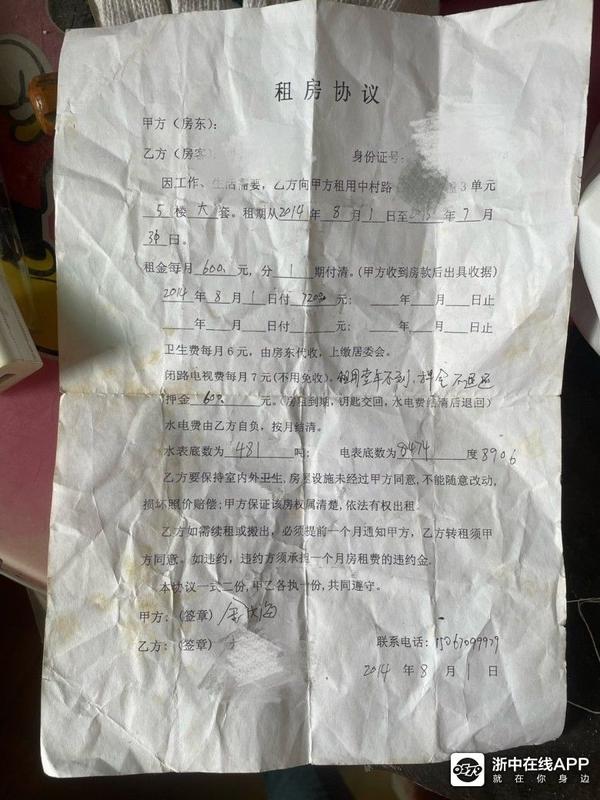 租房协议
甲方（房东）：
乙方（房客）： 身份证号：
因工作、生活需要，乙方向甲方租用中村路 3单元
5 楼 大 套。租期从2014年8月1日至 年7月
日。
租金每月600元，分1期付清。（甲方收到房款后出具收据）
2014年8月1日付7200元：___年___月___日止
___年___月___日付___元：___年___月___日止
卫生费每月6元，由房东代收，上缴居委会。
闭路电视费每月7元（不用免收）。租用壹年不到，押金不退还
押金 600 元。（房租到期，钥匙交回，水电费结清后退回）
水电费由乙方自负，按月结清。
水表底数为481吨； 电表底数为8474度8906
乙方要保持室内外卫生，房屋设施未经过甲方同意，不能随意改动，
损坏照价赔偿；甲方保证该房权属清楚，依法有权出租。
乙方如需续租或搬出，必须提前一个月通知甲方，乙方转租须甲
方同意。如违约，违约方须承担一个月房租费的违约金。
本协议一式二份，甲乙各执一份，共同遵守。
甲方：（签章）
乙方：（签章） 联系电话：
2014年8月1日
浙中在线APP
就在你身边